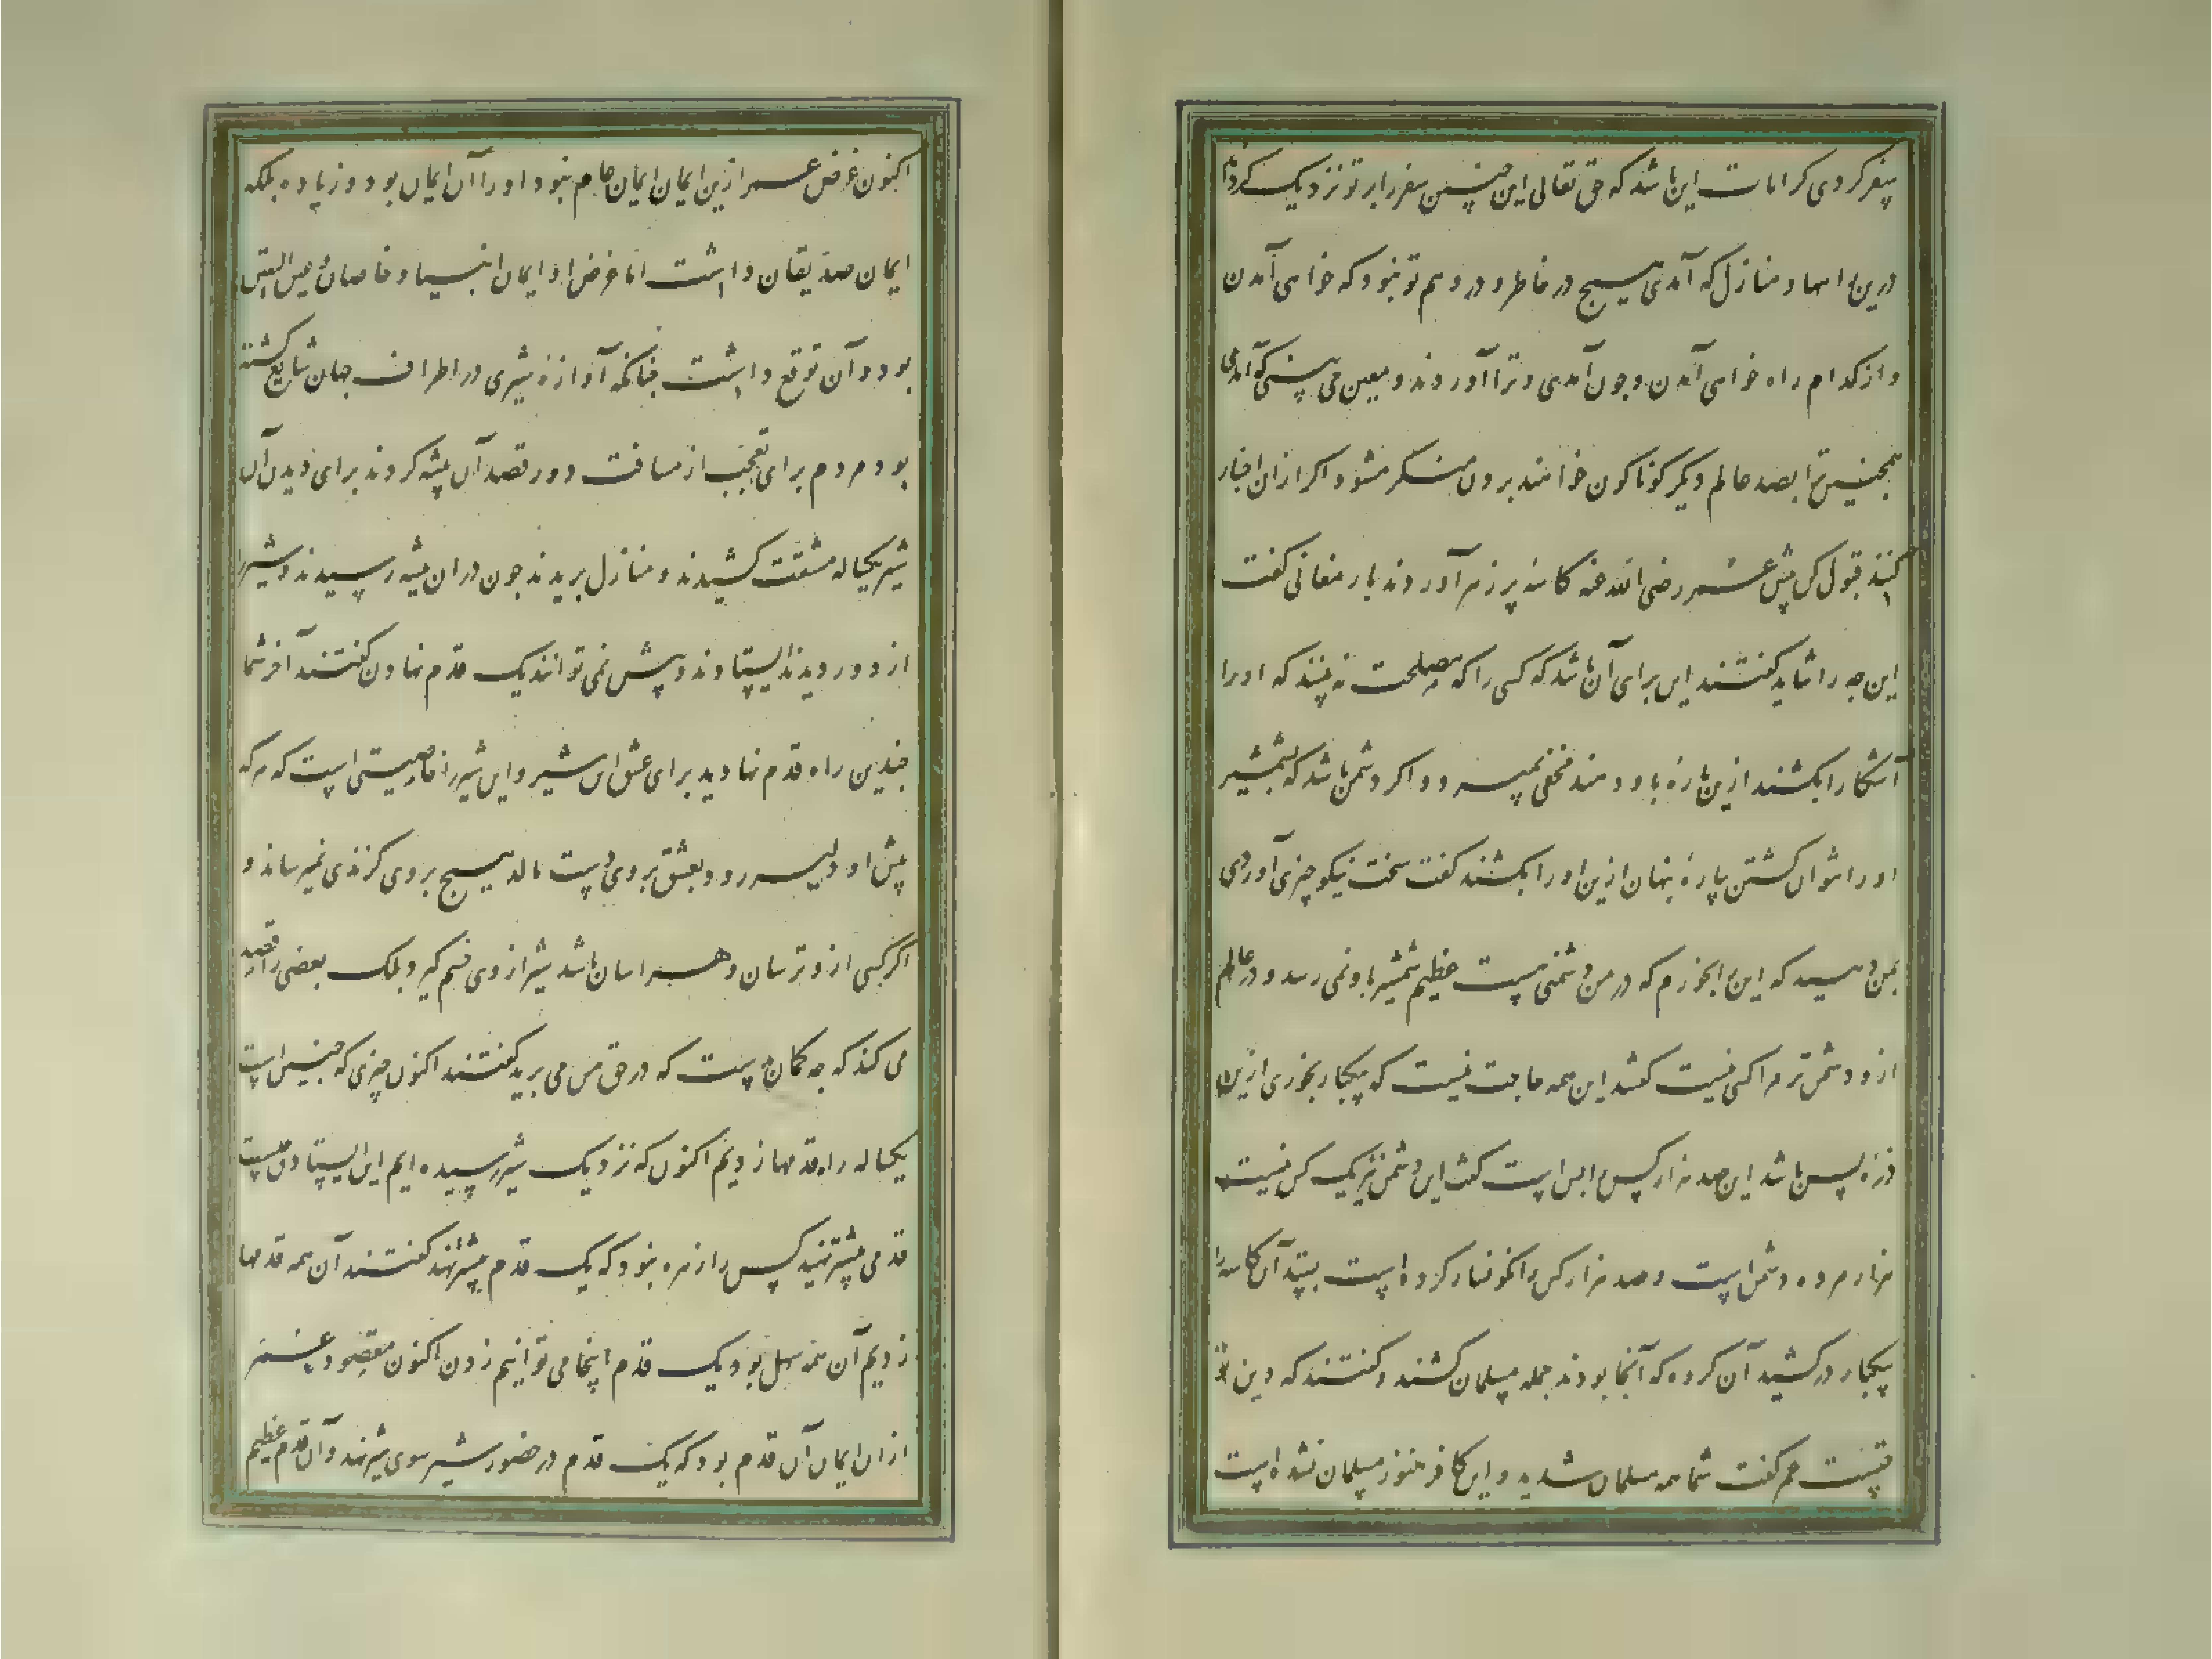 سفر کردی کرامات این باشد که حق تعالی این چنین سفر را بر تو نزدیک کرد تو
درین راهها و منازل که آمدی هیچ در خاطر و در وهم تو نبود که خواهی آمدن
و از کدام راه خواهی آمدن و چون آمدی و ترا آوردند و معین می بینی که آمدی
همچنین ترا بصد عالم دیگر کوناکون خواهند بردن منکر مشو و اکر از ان اخبار
کنند قبول کن پیش عمر رضی الله عنه کاسهٔ پر زهر آوردند بارمغانی کفت
این چه را شاید کفتند این برای آن باشد که کسی را که مصلحت نه بینند که او را
آشکارا بکشند ازین پارهٔ باو دهند مخفی بمیرد و اکر دشمن باشد که بشمشیر
او را نتوان کشتن پارهٔ پنهان ازین او را بکشند کفت سخت نیکو چیزی آوردی
بمن دهید که این را بخورم که در من دشمنی هست عظیم شمشیر باو نمی رسد و در عالم
از و دشمن تر مرا کسی نیست کفتند این همه حاجت نیست که بیکبار بخوری ازین
ذرهٔ بس باشد این صد هزار کس را بس است کفت این دشمن نیز یک کس نیست
هزار مرده دشمن است و صد هزار کس را نکونسار کرده است بستد آن کاسه را
بیکبار در کشید آن کروه که آنجا بودند جمله مسلمان کشتند و کفتند که دین تو
حقست عمر کفت شما همه مسلمان شدید و این کافر هنوز مسلمان نشده است
اکنون غرض عمر ازین ایمان ایمان عام نبود او را آن ایمان بود و زیاده بلکه
ایمان صدیقان داشت اما غرض او ایمان انبیا و خاصان و عین الیقین
بود و آن توقع داشت چنانکه آوازهٔ شیری در اطراف جهان شایع کشته
بود مردم برای تعجب از مسافت دور قصد آن بیشه کردند برای دیدن آن
شیر یکساله مشقت کشیدند و منازل بریدند چون در ان بیشه رسیدند و شیر را
از دور دیدند ایستادند و پیش نمی توانند یک قدم نهادن کفتند آخر شما
چندین راه قدم نهادید برای عشق این شیر و این شیر را خاصیتی است که هر که
پیش او دلیر رود و بعشق بر وی دست مالد هیچ بر وی کزندی نمیرساند و
اکر کسی از و ترسان و هراسان باشد شیر از وی خشم کیرد بلک بعضی را قصد
می کند که چه کمان بدست که در حق من می برید کفتند اکنون چیزی که چنین است
یکساله راه قدمها زدیم اکنون که نزدیک شیر رسیده ایم این ایستادن چیست
قدمی پیشتر نهید کس را زهره نبود که یک قدم پیشتر نهند کفتند آن همه قدمها
زدیم آن همه سهل بود یک قدم اینجا نمی توانیم زدن اکنون مقصود عمر
از ان ایمان آن قدم بود که یک قدم در حضور شیر سوی شیر نهند و آن قدم عظیم